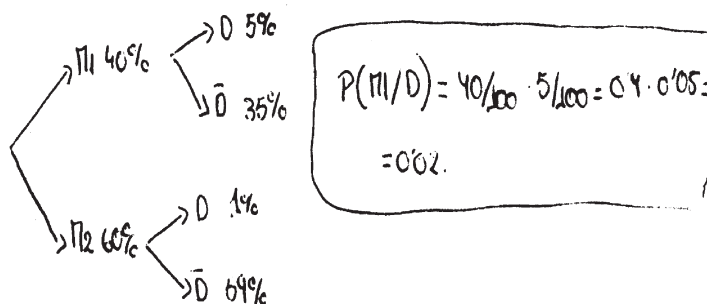 D 5%
M1 40%
D̄ 35%
M2 60%
D 1%
D̄ 59%
P(M1/D) = 40/100 · 5/100 = 0'4 · 0'05 =
= 0'02.